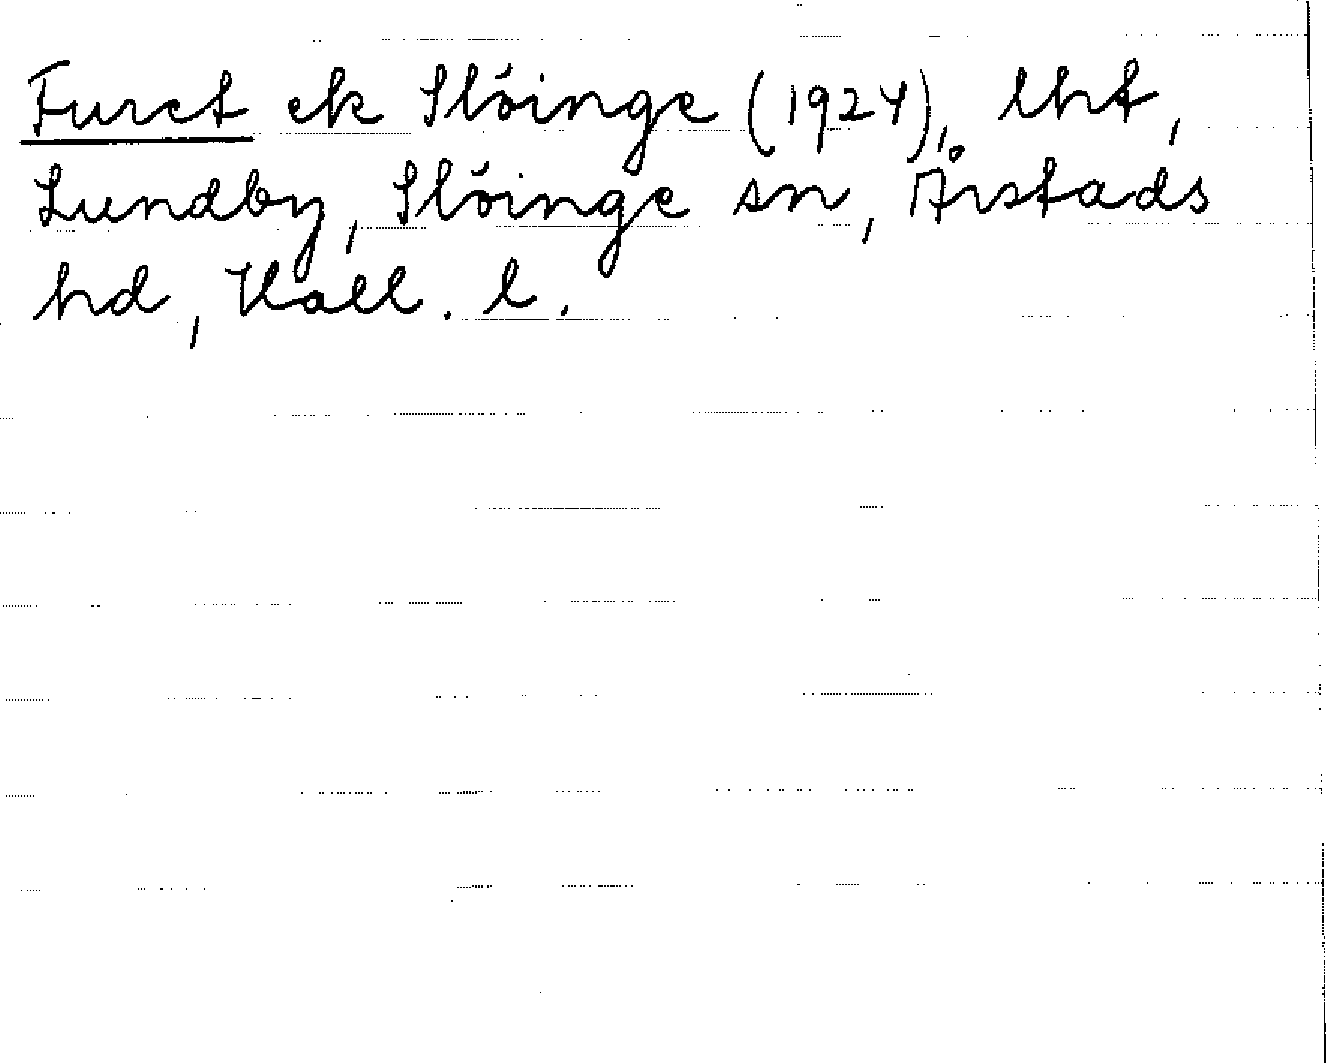 Furet ek Slöinge (1924), lht,
Lundby, Slöinge sn, Årstads
hd, Hall. l.